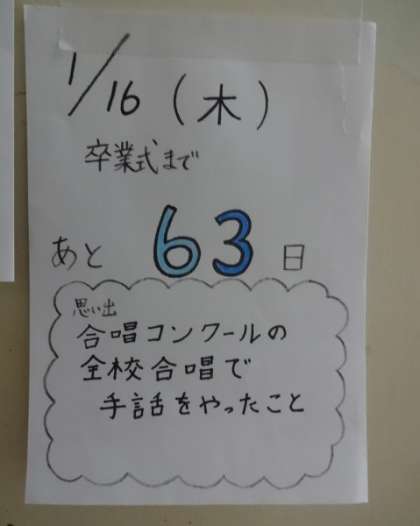 1/16(木)
卒業式まで
あと 63 日
思い出
合唱コンクールの
全校合唱で
手話をやったこと